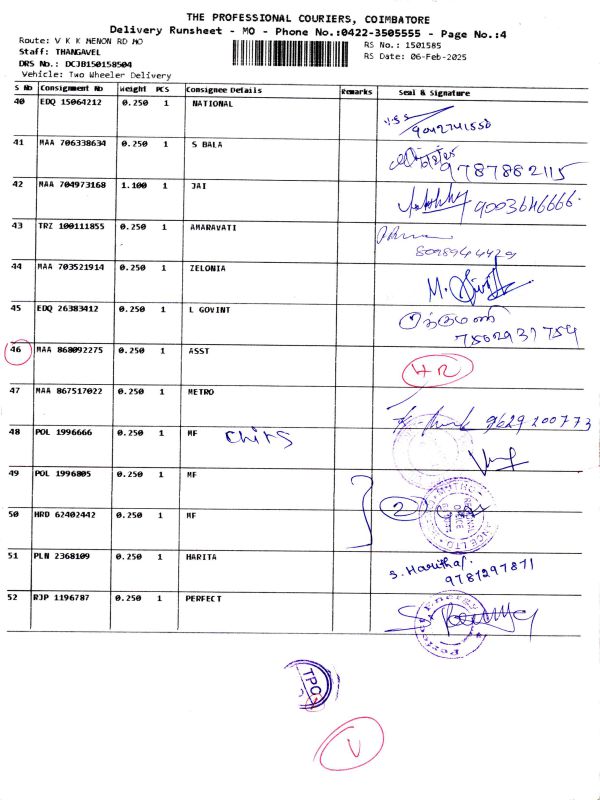 THE PROFESSIONAL COURIERS, COIMBATORE
Delivery Runsheet - MO - Phone No.:0422-3505555 - Page No.:4
Route: V K K MENON RD MO
RS No.: 1501585
Staff: THANGAVEL
RS Date: 06-Feb-2025
DRS No.: DCJB150158504
Vehicle: Two Wheeler Delivery
S No Consignment No Weight PCS Consignee Details Remarks Seal & Signature
40 EDQ 15064212 0.250 1 NATIONAL
9042741550
41 MAA 706338634 0.250 1 S BALA
9787882115
42 MAA 704973168 1.100 1 JAI 9003646666
43 TRZ 100111855 0.250 1 AMARAVATI
8098944429
44 MAA 703521914 0.250 1 ZELONIA
45 EDQ 26383412 0.250 1 L GOVINT
7502931754
46 MAA 868092275 0.250 1 ASST
47 MAA 867517022 0.250 1 METRO 9629200773
48 POL 1996666 0.250 1 MF chits
49 POL 1996805 0.250 1 MF
2
50 HRD 62402442 0.250 1 MF
51 PLN 2368109 0.250 1 HARITA
S. Haritha
9781297871
52 RJP 1196787 0.250 1 PERFECT
TPC
V